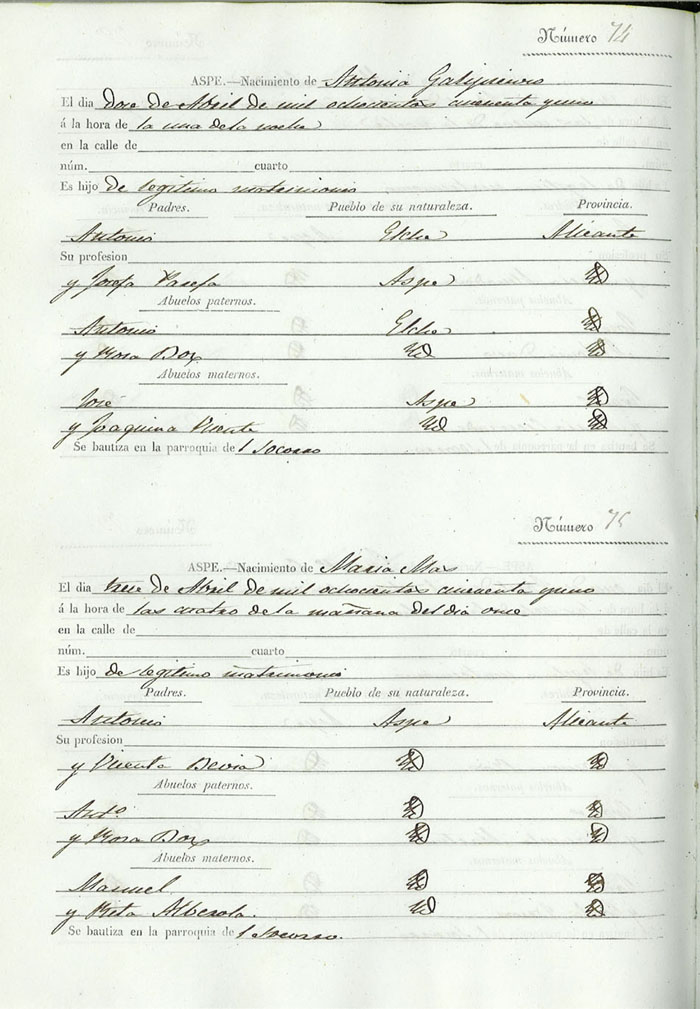 Número 74
ASPE.—Nacimiento de Antonia Galipienso
El dia doce de Abril de mil ochocientos cincuenta y uno
á la hora de la una de la noche
en la calle de
núm. cuarto
Es hijo de legitimo matrimonio
Padres. Pueblo de su naturaleza. Provincia.
Antonio Elche Alicante
Su profesion
y Josefa Aspe Id
Abuelos paternos.
Antonio Elche Id
y Rosa Box Id Id
Abuelos maternos.
José Aspe Id
y Joaquina Vicente Id Id
Se bautiza en la parroquia del Socorro
Número 75
ASPE.—Nacimiento de Maria Mas
El dia trece de Abril de mil ochocientos cincuenta y uno
á la hora de las cuatro de la mañana del dia once
en la calle de
núm. cuarto
Es hijo de legitimo matrimonio
Padres. Pueblo de su naturaleza. Provincia.
Antonio Aspe Alicante
Su profesion
y Vicenta Id Id
Abuelos paternos.
Antº Id Id
y Rosa Box Id Id
Abuelos maternos.
Manuel Id Id
y Rita Alberola. Id Id
Se bautiza en la parroquia del Socorro.